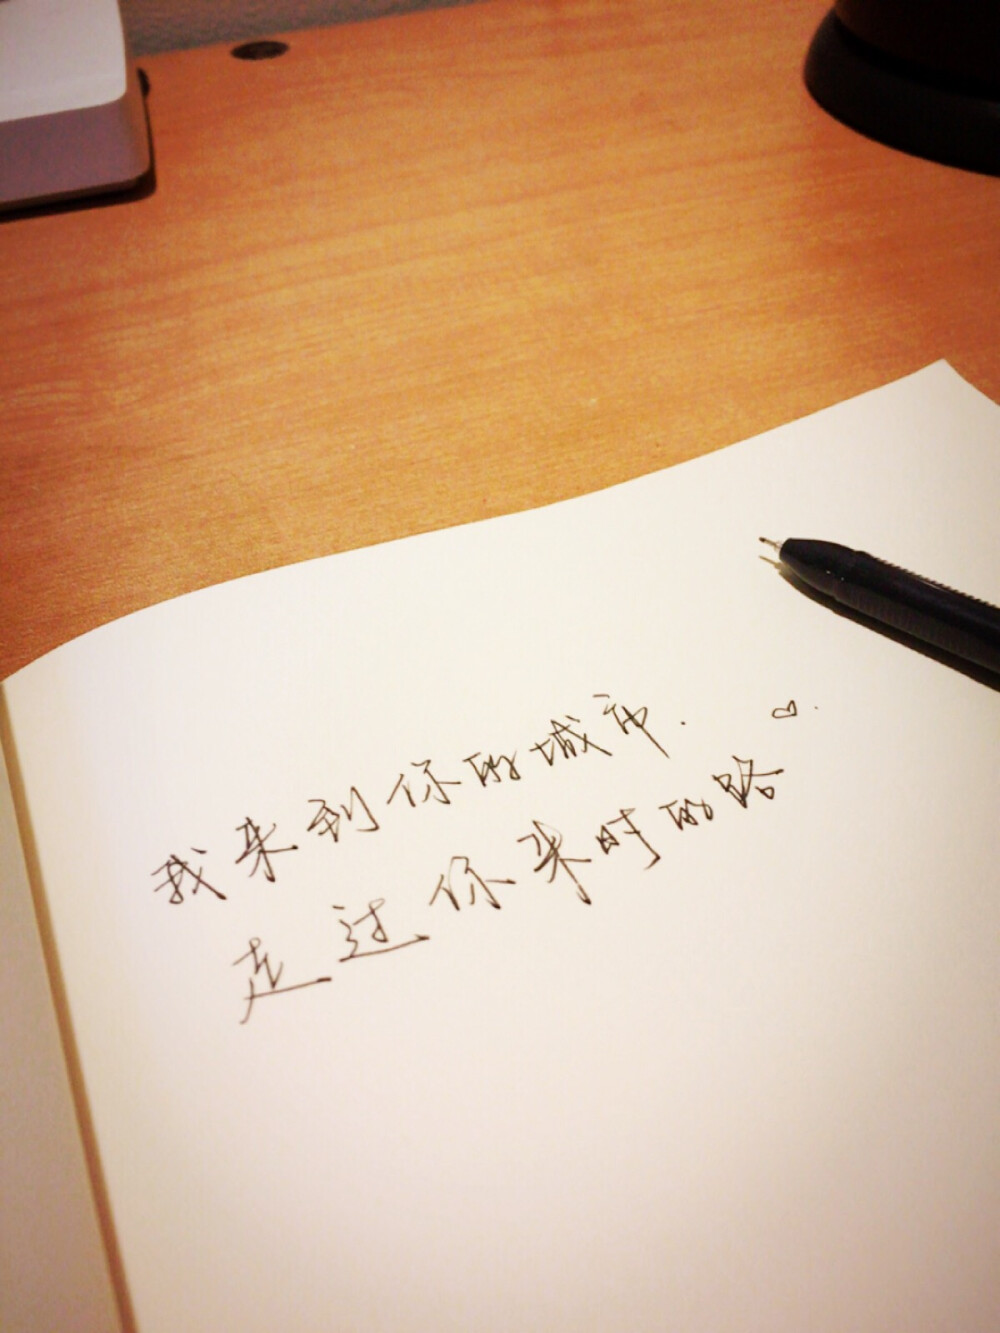 我来到你的城市.
走过你来时的路